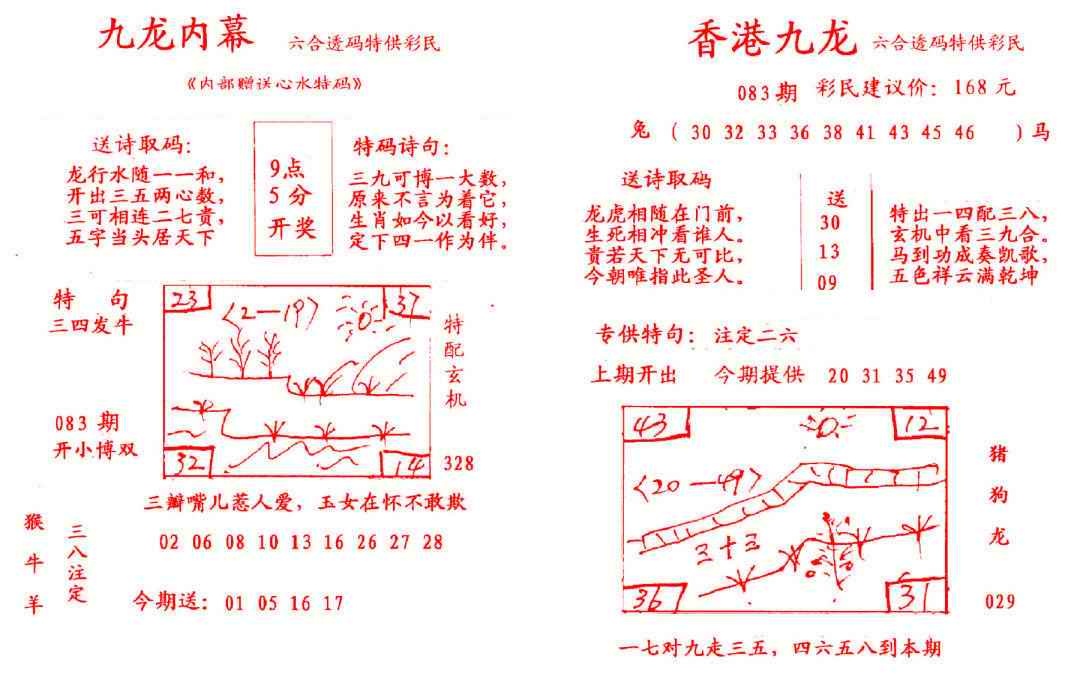 九龙内幕 六合透码特供彩民
《内部赠送心水特码》
送诗取码:
龙行水随一一和,
开出三五两心数,
三可相连二七贵,
五字当头居天下
9点
5分
开奖
特码诗句:
三九可博一大数,
原来不言为着它,
生肖如今以看好,
定下四一作为伴。
特 句
三四发牛
083期
开小博双
23
〈2—19〉
37
32
14
特配玄机
328
三瓣嘴儿惹人爱, 玉女在怀不敢欺
猴牛羊
三八注定
02 06 08 10 13 16 26 27 28
今期送: 01 05 16 17
香港九龙 六合透码特供彩民
083期 彩民建议价: 168元
兔 ( 30 32 33 36 38 41 43 45 46 ) 马
送诗取码
龙虎相随在门前,
生死相冲看谁人。
贵若天下无可比,
今朝唯指此圣人。
送
30
13
09
特出一四配三八,
玄机中看三九合。
马到功成奏凯歌,
五色祥云满乾坤
专供特句: 注定二六
上期开出 今期提供 20 31 35 49
43
12
〈20—49〉
三十三
36
31
猪狗龙
029
一七对九走三五, 四六五八到本期